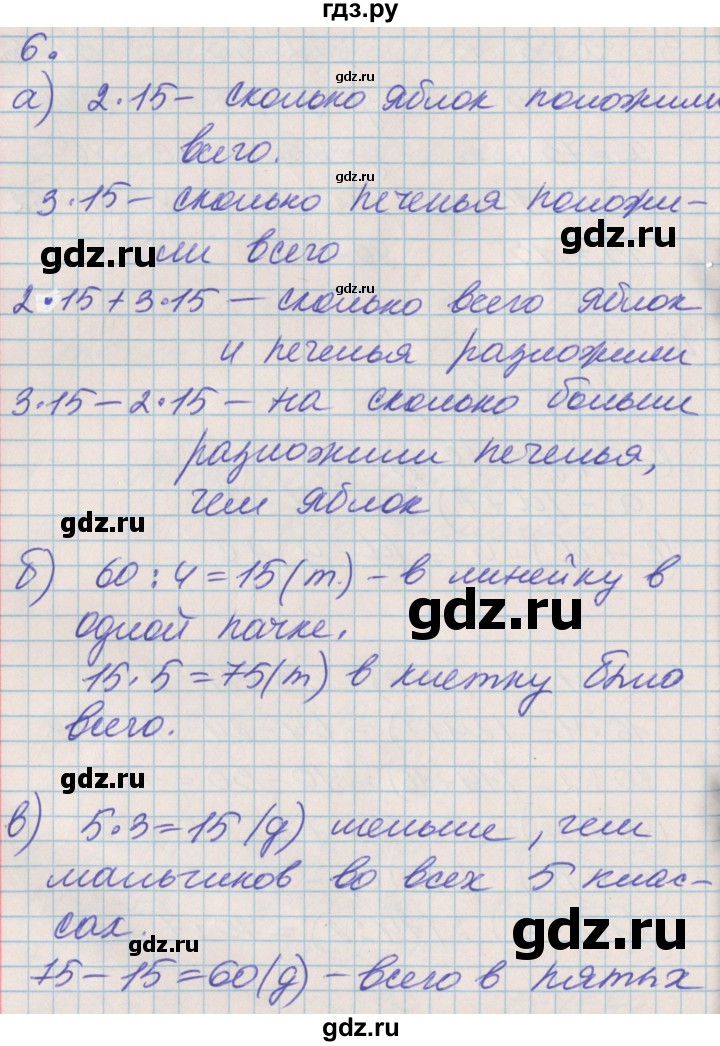 гдз.ру
6.
gdz.ru
а) 2·15 – сколько яблок положили
всего.
gdz.ru
3·15 – сколько печенья положи-
gdz.ru
ли всего
gdz.ru
gdz.ru
2·15+3·15 – сколько всего яблок
и печенья разложили
3·15 – 2·15 – на сколько больше
разложили печенья,
чем яблок
gdz.ru
б) 60:4=15(т.) – в линейку в
gdz.ru
одной пачке.
15·5=75(т) в клетку было
всего.
gdz.ru
в) 5·3=15(д) меньше, чем
мальчиков во всех 5 клас-
сах.
gdz.ru
gdz.ru
75–15=60(д) – всего в пятых
gdz.ru